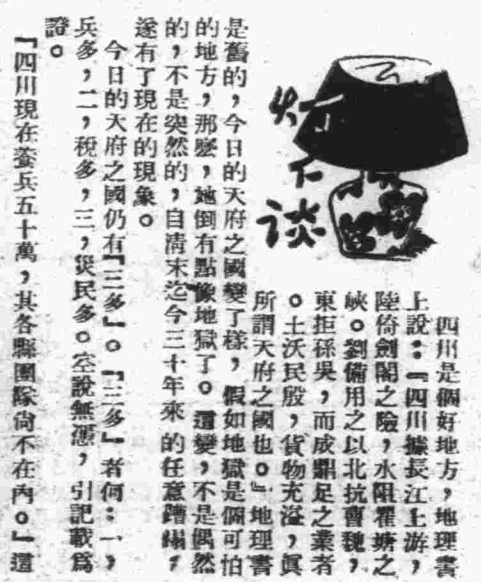 灯下谈
四川是個好地方,地理書
上說:『四川據長江上游,
陸倚劍閣之險,水阻瞿塘之
峽。劉備用之以北抗曹魏,
東拒孫吳,而成鼎足之業者
。土沃民殷,貨物充溢,眞
所謂天府之國也。』地理書
是舊的,今日的天府之國變了樣,假如地獄是個可怕
的地方,那麽,她倒有點像地獄了。這變,不是偶然
的,不是突然的,自清末迄今三十年來的任意蹧蹋,
遂有了現在的現象。
今日的天府之國仍有『三多』。『三多』者何:一,
兵多,二,稅多,三,災民多。空說無憑,引記載爲
證。
『四川現在養兵五十萬,其各縣團隊尚不在內。』這